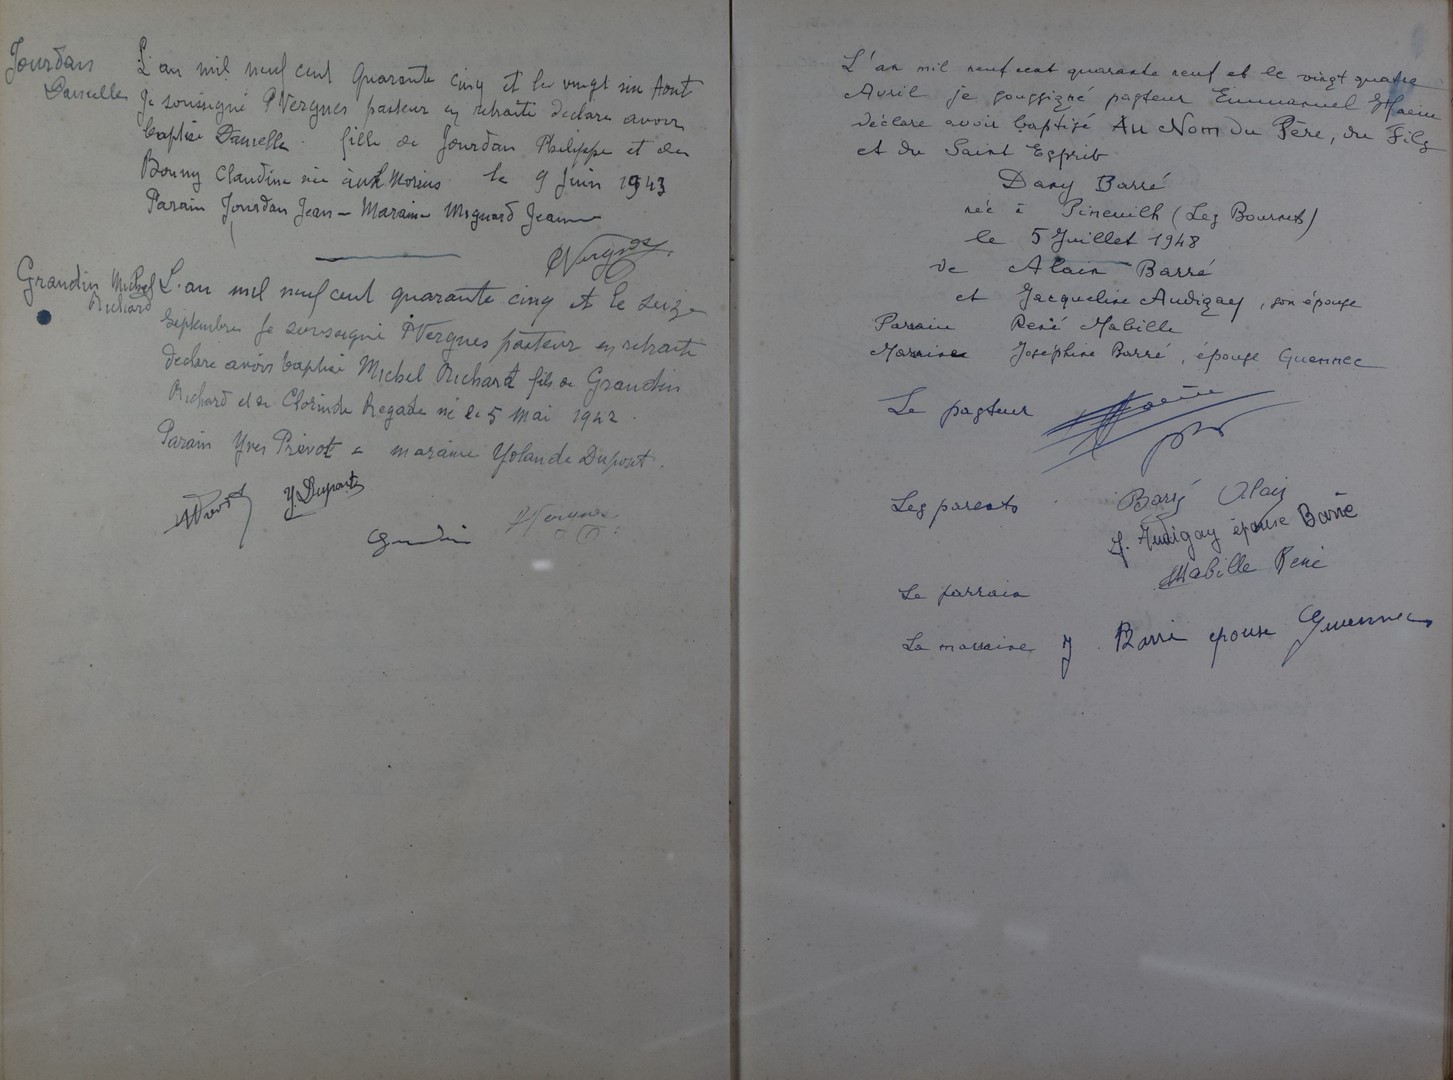 Jourdan
Danielle
L'an mil neuf cent quarante cinq et le vingt six Aout
Je soussigné P Vergnes pasteur en retraite declare avoir
baptisé Danielle fille de Jourdan Philippe et de
Bonny Claudine née le 9 Juin 1943
Parain Jourdan Jean - Maraine Mignard Jeanne
P Vergnes
Grandin Michel
Richard
L'an mil neuf cent quarante cinq et le seize
Septembre Je soussigné P Vergnes pasteur en retraite
declare avoir baptisé Michel Richard fils de Grandin
Richard et de Clorinde Regade né le 5 Mai 1942.
Parain Yves Prévot a maraine Yolande Dupont.
Y. Dupont
Grandin
P Vergnes
L'an mil neuf cent quarante neuf et le vingt quatre
Avril je soussigné pasteur Emmanuel
déclare avoir baptisé Au Nom du Père, du Fils
et du Saint Esprit
Dany Barré
né à Pineuilh (Les Bournets)
le 5 Juillet 1948
de Alain Barré
et Jacqueline Audigay, son épouse
Parrain René Mabille
Marraine Joséphine Barré, épouse Guennec
Le pasteur
Les parents Barré Alain
J. Audigay épouse Barré
Mabille René
Le parrain
La marraine J Barré épouse Guennec